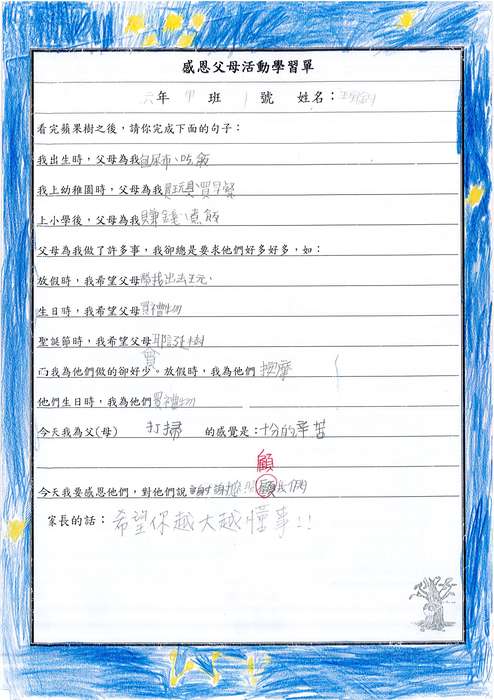 感恩父母活動學習單
六年 甲 班 1 號 姓名：
看完蘋果樹之後，請你完成下面的句子：
我出生時，父母為我包尿布、吃飯
我上幼稚園時，父母為我買玩具、買早餐
上小學後，父母為我賺錢、煮飯
父母為我做了許多事，我卻總是要求他們好多好多，如：
放假時，我希望父母帶我出去玩、
生日時，我希望父母買禮物
聖誕節時，我希望父母買耶誕樹
而我為他們做的卻好少。放假時，我為他們 按摩
他們生日時，我為他們買禮物
今天我為父(母) 打掃 的感覺是：十分的辛苦
顧
今天我要感恩他們，對他們說 謝謝你照顧我們
家長的話：希望你越大越懂事!!